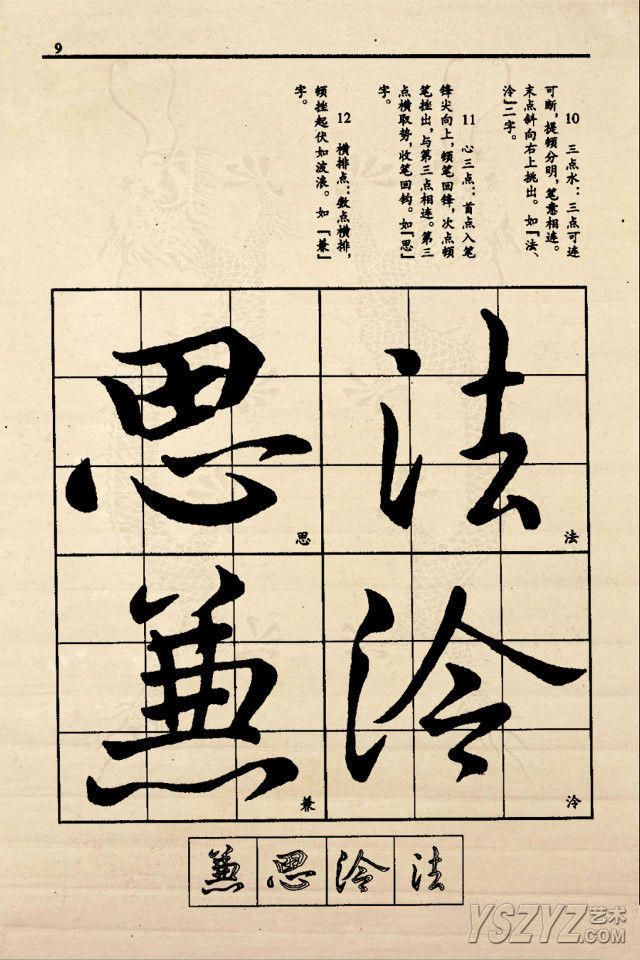 9
10 三点水：三点可连
可断，提顿分明，笔意相连。
末点斜向右上挑出。如『法、
泠』二字。
11 心三点：首点入笔
锋尖向上，顿笔回锋，次点顿
笔挫出，与第三点相连。第三
点横取势，收笔回钩。如『思』
字。
12 横排点：数点横排，
顿挫起伏如波浪。如『兼』
字。
法
法
泠
泠
思
思
兼
兼
兼 思 泠 法
YSZYZ艺术
.COM